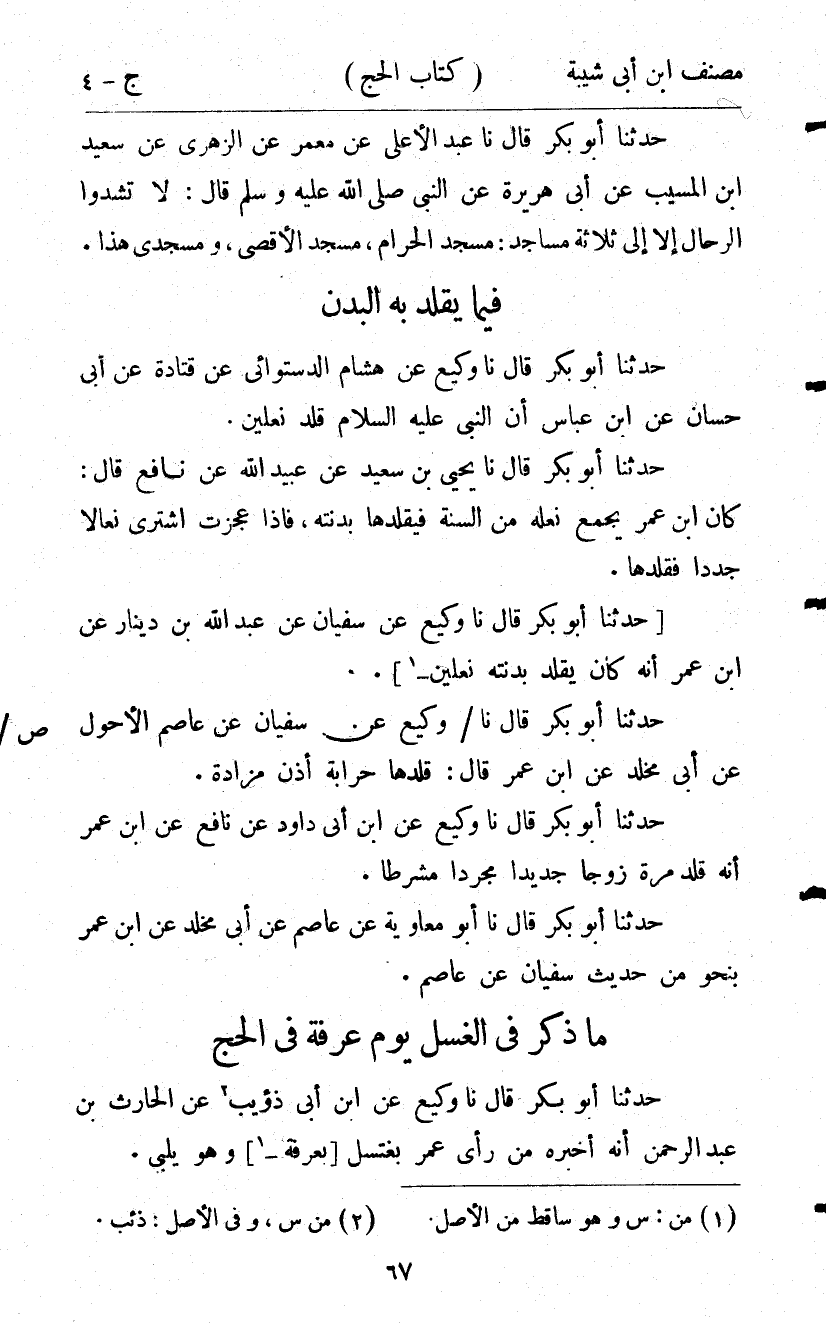 مصنف ابن أبى شيبة ( كتاب الحج ) ج - ٤
حدثنا أبو بكر قال نا عبد الأعلى عن معمر عن الزهرى عن سعيد
ابن المسيب عن أبى هريرة عن النبى صلى الله عليه و سلم قال : لا تشدوا
الرحال إلا إلى ثلاثة مساجد : مسجد الحرام ، مسجد الأقصى ، و مسجدى هذا .
فيما يقلد به البدن
حدثنا أبو بكر قال نا وكيع عن هشام الدستوائى عن قتادة عن أبى
حسان عن ابن عباس أن النبى عليه السلام قلد نعلين .
حدثنا أبو بكر قال نا يحيى بن سعيد عن عبيد الله عن نافع قال :
كان ابن عمر يجمع نعله من السنة فيقلدها بدنته ، فاذا عجزت اشترى نعالا
جددا فقلدها .
[ حدثنا أبو بكر قال نا وكيع عن سفيان عن عبد الله بن دينار عن
ابن عمر أنه كان يقلد بدنته نعلين ـ١ ] .
حدثنا أبو بكر قال نا / وكيع عن سفيان عن عاصم الأحول ص /
عن أبى مخلد عن ابن عمر قال : قلدها حرابة أذن مزادة .
حدثنا أبو بكر قال نا وكيع عن ابن أبى داود عن نافع عن ابن عمر
أنه قلد مرة زوجا جديدا مجردا مشرطا .
حدثنا أبو بكر قال نا أبو معاوية عن عاصم عن أبى مخلد عن ابن عمر
بنحو من حديث سفيان عن عاصم .
ما ذكر فى الغسل يوم عرفة فى الحج
حدثنا أبو بكر قال نا وكيع عن ابن أبى ذؤيب٢ عن الحارث بن
عبد الرحمن أنه أخبره من رأى عمر بغتسل [ بعرفة ـ١ ] و هو يلبي .
(١) من : س و هو ساقط من الأصل . (٢) من س ، و فى الأصل : ذئب .
٦٧